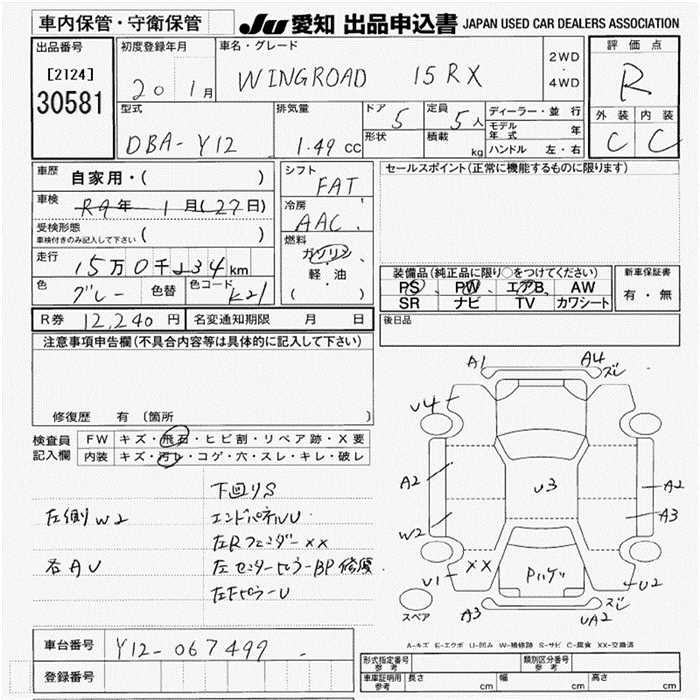 車内保管・守衛保管
JU 愛知 出品申込書 JAPAN USED CAR DEALERS ASSOCIATION
出品番号
[2124]
30581
初度登録年月
20 1月
車名・グレード
WINGROAD 15RX
2WD
・
4WD
評価点
R
外装 内装
C C
型式
DBA-Y12
排気量
1.49 cc
ドア 5
形状
定員 5人
積載 kg
ディーラー・並行
モデル年式 年
ハンドル 左・右
車歴
自家用・( )
車検
R9年 1月(27日)
受検形態
車検付きのみ記入して下さい ( )
走行
15万0千 34 km
色 グレー 色替 色コード K21
シフト
FAT
冷房
AAC
燃料
ガソリン
軽・油
( )
セールスポイント(正常に機能するものに限ります)
装備品(純正品に限り○をつけてください)
PS PW エアB AW
SR ナビ TV カワシート
新車保証書
有・無
R券 12,240円 名変通知期限 月 日
後日品
注意事項申告欄(不具合内容等は具体的に記入して下さい)
修復歴 有 〔箇所 〕
検査員
記入欄
FW キズ・飛石・ヒビ割・リペア跡・X要
内装 キズ・汚レ・コゲ・穴・スレ・キレ・破レ
下回りS
左側W2 エンドパネルU
左Rフェンダー××
右AU 左センターピラーBP修復
左FピラーU
A1 A4 ズレ
U4
A2 U3 A2
W2 A3
U1 XX U2
スペア A3 UA2 ズレ
A-キズ E-エクボ U-凹み W-補修跡 S-サビ C-腐食 XX-交換済
車台番号 Y12-067499
登録番号
形式指定番号 参考
類別区分番号 参考
車庫証明用 参考 長さ cm 幅 cm 高さ cm